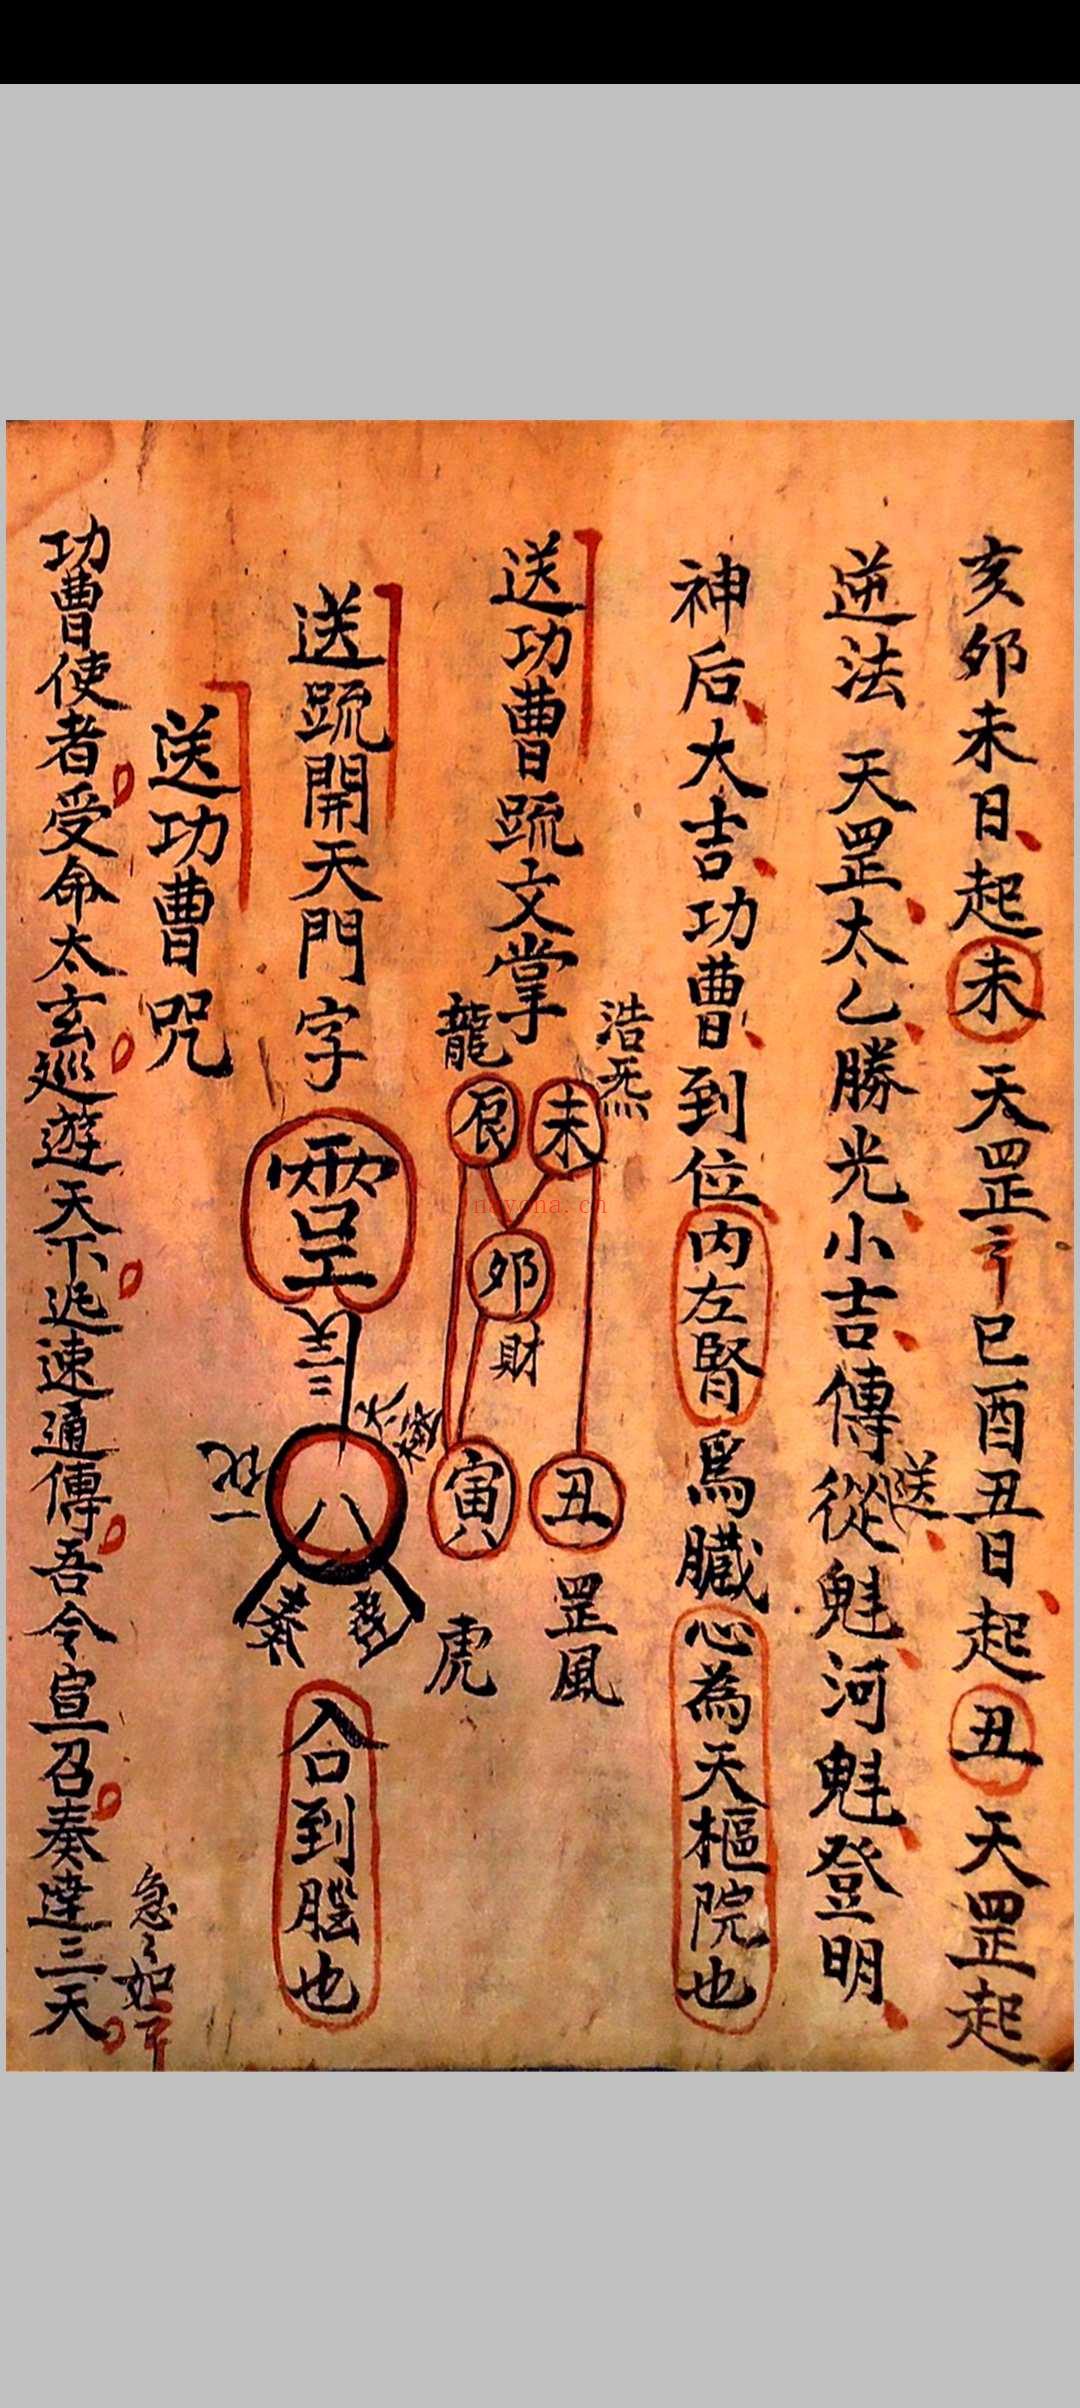 亥卯未日起未天罡ミ巳酉丑日起丑天罡起
逆法 天罡太乙勝光小吉傳送從魁河魁登明
神后大吉功曹到位內左腎爲臟心為天樞院也
送功曹䟽文掌
浩炁
未
龍
艮
卯
財
寅
丑
罡風
虎
送䟽開天門字
入口到腦也
送功曹咒
功曹使者受命太玄巡遊天下迅速通傳吾令宣召奏達三天
急ミ如
nayona.cn